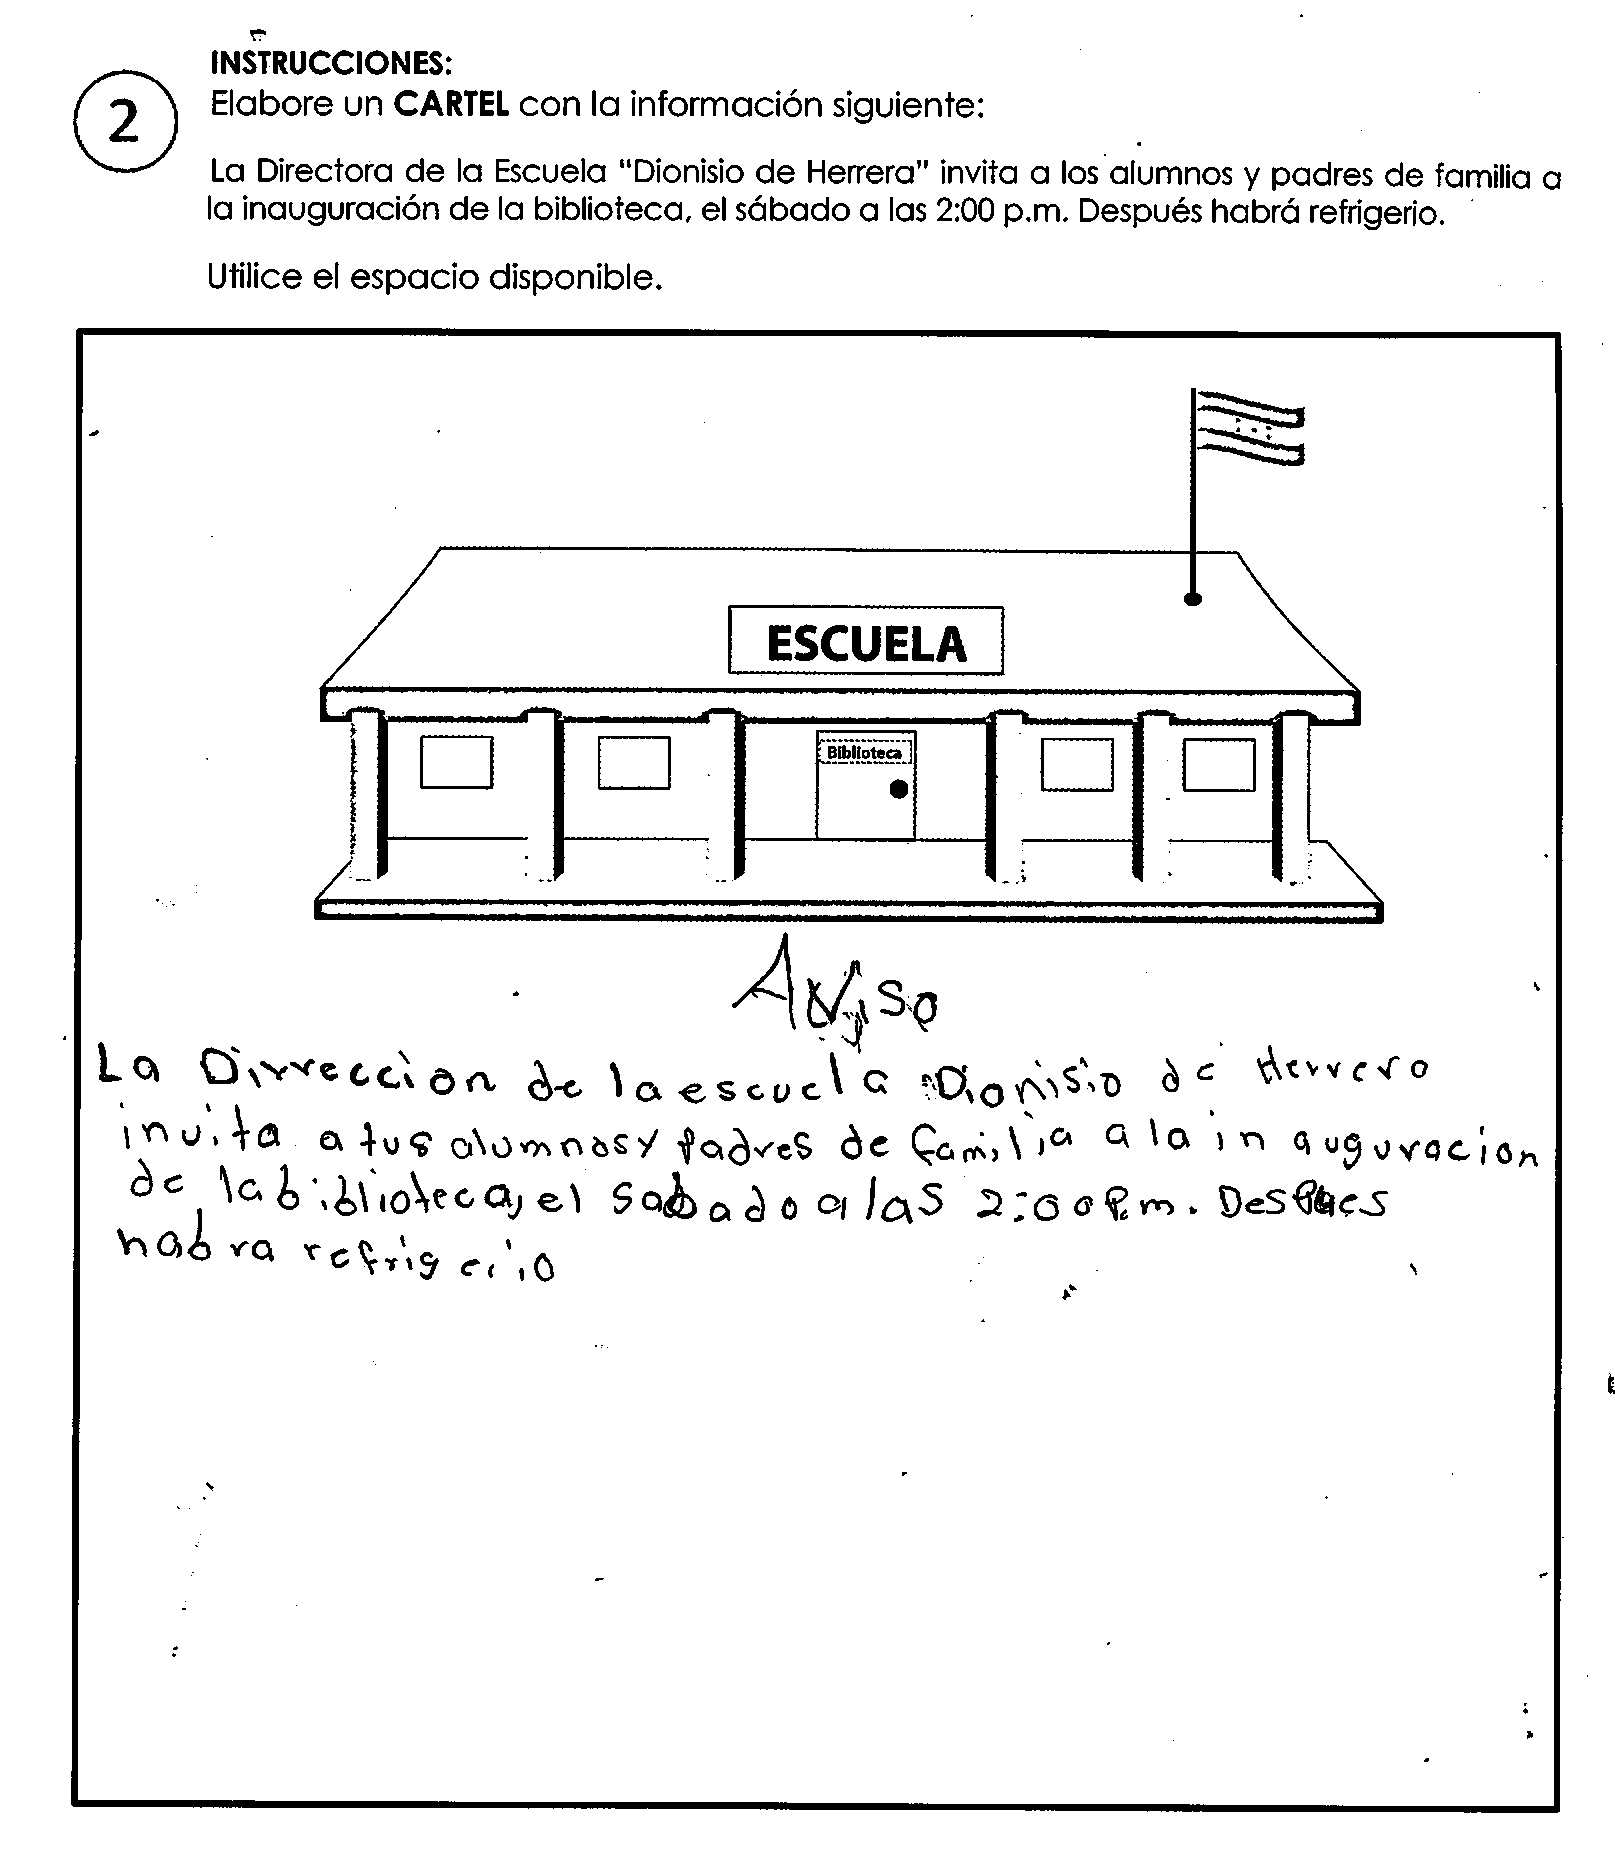 INSTRUCCIONES:
2
Elabore un CARTEL con la información siguiente:
La Directora de la Escuela "Dionisio de Herrera" invita a los alumnos y padres de familia a
la inauguración de la biblioteca, el sábado a las 2:00 p.m. Después habrá refrigerio.
Utilice el espacio disponible.
ESCUELA
Biblioteca
Aviso
La Dirreccion de la escuela Dionisio de Herrero
invita a tus alumnos y padres de familia a la inauguracion
de la biblioteca, el sabado a las 2:00 P.m. Despues
habra refrigerio